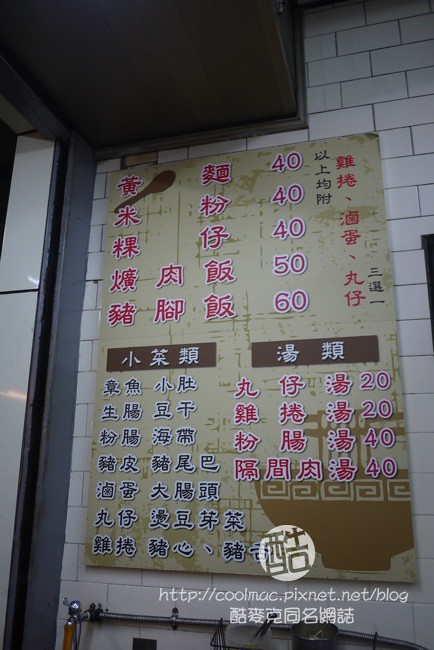 黃麵 40
米粉 40
粿仔 40
爌肉飯 50
豬腳飯 60
以上均附
雞捲、滷蛋、丸仔
三選一
小菜類
章魚 小肚
生腸 豆干
粉腸 海帶
豬皮 豬尾巴
滷蛋 大腸頭
丸仔 燙豆芽菜
雞捲 豬心、豬舌
湯類
丸仔湯 20
雞捲湯 20
粉腸湯 40
隔間肉湯 40
酷
http://coolmac.pixnet.net/blog
酷麥克同名網誌